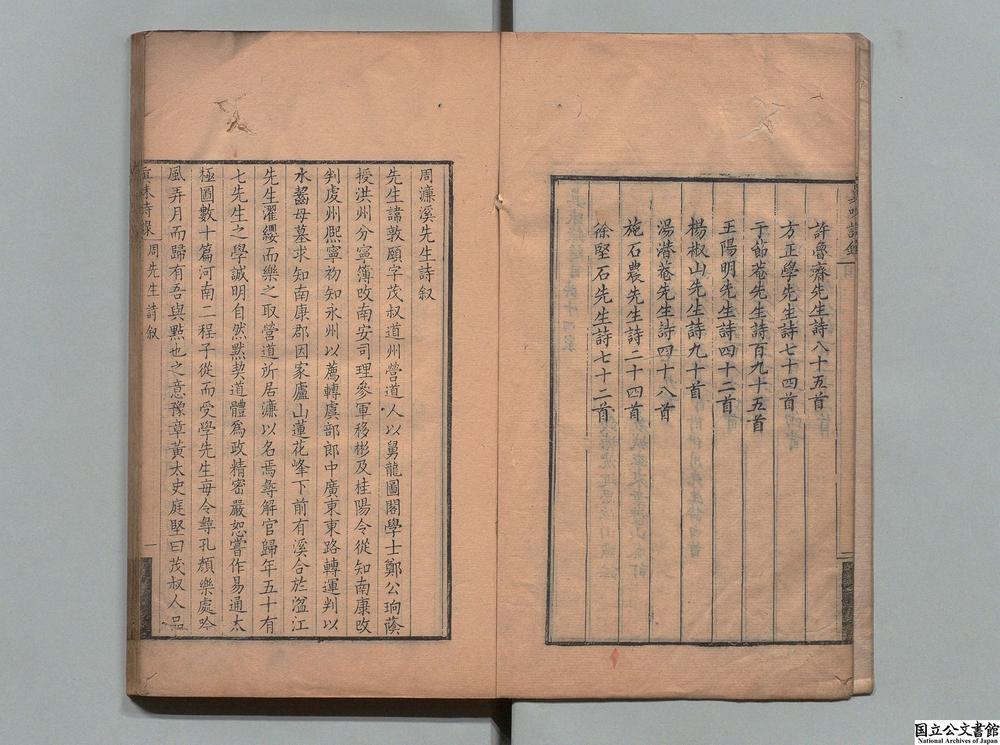 許魯齋先生詩八十五首
方正學先生詩七十四首
于節菴先生詩百九十五首
王陽明先生詩四十二首
楊椒山先生詩九十首
湯潜菴先生詩四十八首
施石農先生詩二十四首
徐堅石先生詩七十二首
周濂溪先生詩叙
先生諱敦頤字茂叔道州營道人以舅龍圖閣學士鄭公珦蔭
授洪州分寧簿改南安司理參軍移彬及桂陽令從知南康改
判虔州熈寧初知永州以薦轉虞部郎中廣東東路轉運判以
水齧母墓求知南康郡因家廬山蓮花峰下前有溪合於湓江
先生濯纓而樂之取營道所居濂以名焉尋解官歸年五十有
七先生之學誠明自然默契道體為政精密嚴恕嘗作易通太
極圖數十篇河南二程子從而受學先生每令尋孔顏樂處吟
風弄月而歸有吾與點也之意豫章黃太史庭堅曰茂叔人品
周先生詩叙
一
国立公文書館
National Archives of Japan